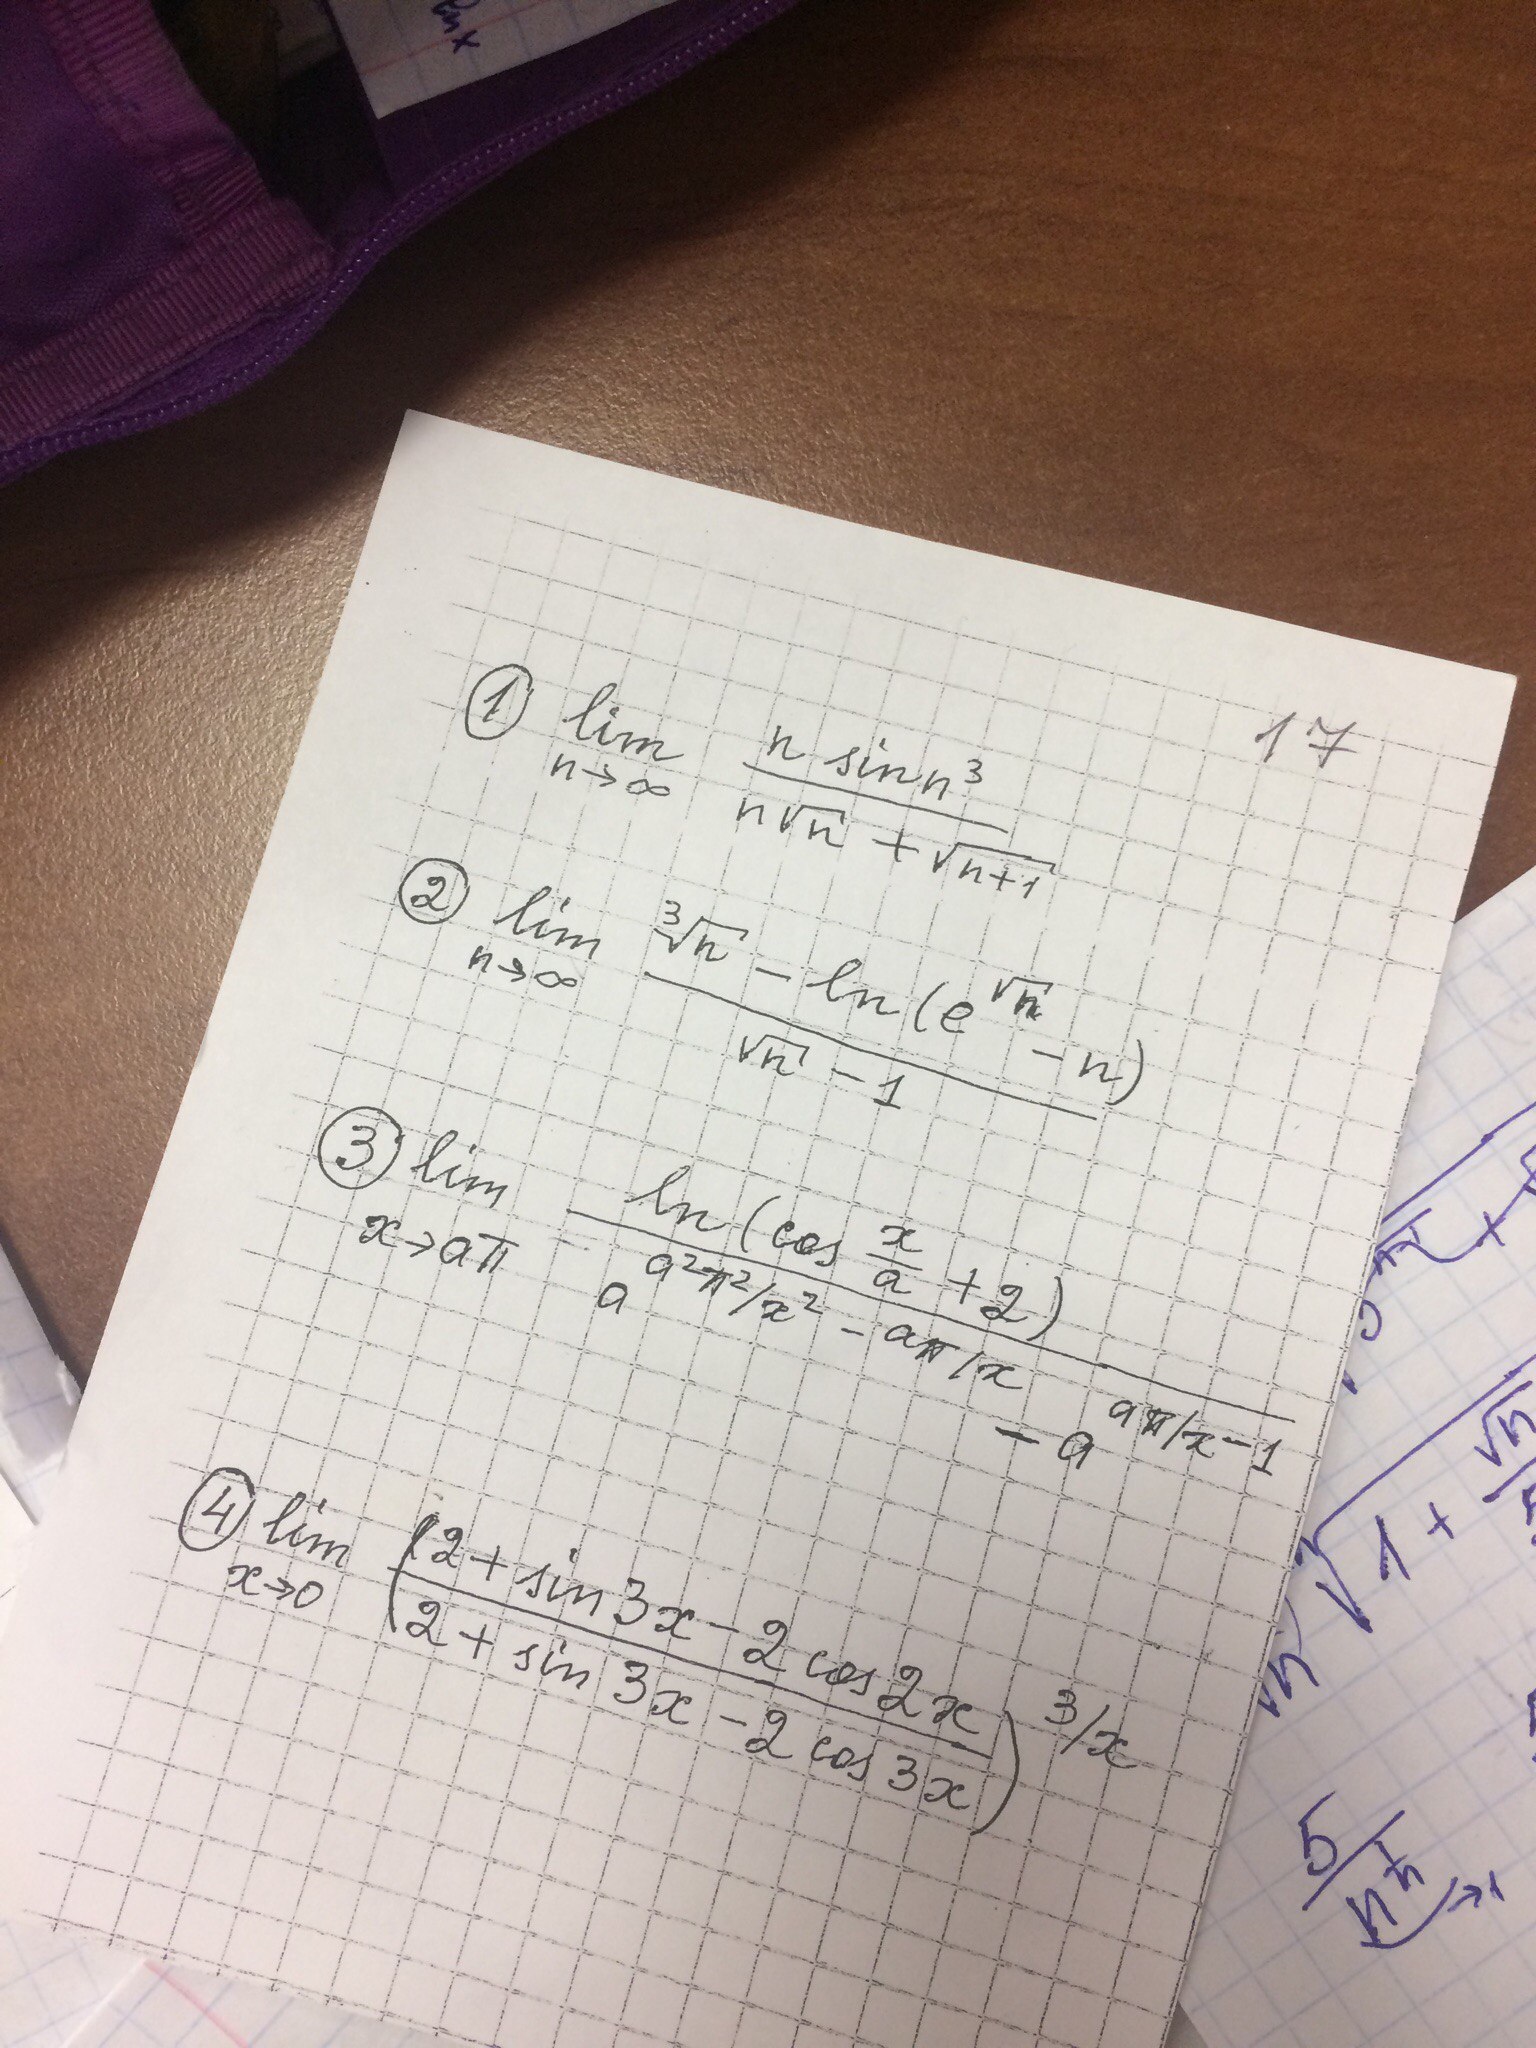 ln x
17
① lim n→∞ (n sin n³)/(n√n + √(n+1))
② lim n→∞ (³√n − ln(e^√n − n))/(√n − 1)
③ lim x→aπ (ln(cos x/a + 2))/(a^(a²π²/x² − aπ/x) − a^(aπ/x − 1))
④ lim x→0 ((2 + sin 3x − 2 cos 2x)/(2 + sin 3x − 2 cos 3x))^(3/x)
√1 + √n
5
→1